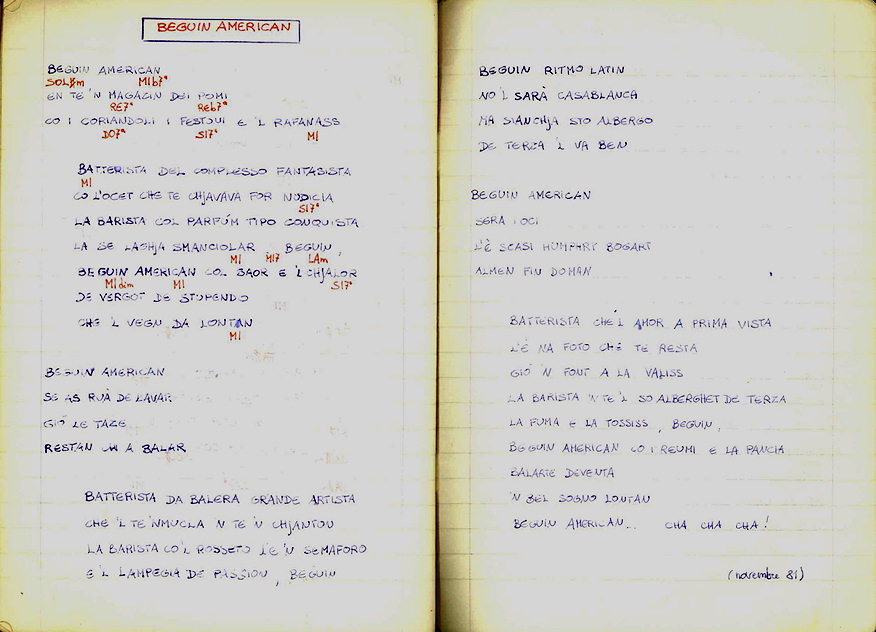 BEGUIN AMERICAN
BEGUIN AMERICAN
SOL#m MIb7ª
EN TE 'N MAGAZIN DEI POMI
RE7ª REb7ª
CO I CORIANDOLI I FESTOUI E 'L RAFANASS
DO7ª SI7ª MI
BATTERISTA DEL COMPLESSO FANTASISTA
MI
CO L'OCET CHE TE CHJAVAVA FOR NUDICIA
SI7ª
LA BARISTA COL PARFÚM TIPO CONQUISTA
LA SE LASHJA SMANCIOLAR , BEGUIN ,
MI MI7 LAm
BEGUIN AMERICAN COL SAOR E 'L CHJALOR
MI dim MI SI7ª
DE VERGOT DE STUPENDO
CHE 'L VEGN DA LONTAN
MI
BEGUIN AMERICAN
SE AS RUÀ DE LAVAR
GIÓ LE TAZE
RESTAN CHI A BALAR
BATTERISTA DA BALERA GRANDE ARTISTA
CHE 'L TE 'NMUCLA 'N TE 'N CHJANTOU
LA BARISTA CO'L ROSSETO L'E 'N SEMAFORO
E 'L LAMPEGIA DE PASSION , BEGUIN
BEGUIN RITMO LATIN
NO 'L SARÀ CASABLANCA
MA SIANCHJA STO ALBERGO
DE TERZA 'L VA BEN
BEGUIN AMERICAN
SERA I OCI
L'È SCASI HUMPHRY BOGART
ALMEN FIN DOMAN
BATTERISTA CHE'L AMOR A PRIMA VISTA
L'È NA FOTO CHE TE RESTA
GIÓ 'N FOUT A LA VALISS
LA BARISTA 'N TE 'L SO ALBERGHET DE TERZA
LA FUMA E LA TOSSISS , BEGUIN ,
BEGUIN AMERICAN CO I REUMI E LA PANCIA
BALARTE DEVENTA
'N BEL SOGNO LONTAN
BEGUIN AMERICAN... CHA CHA CHA !
(novembre 81)